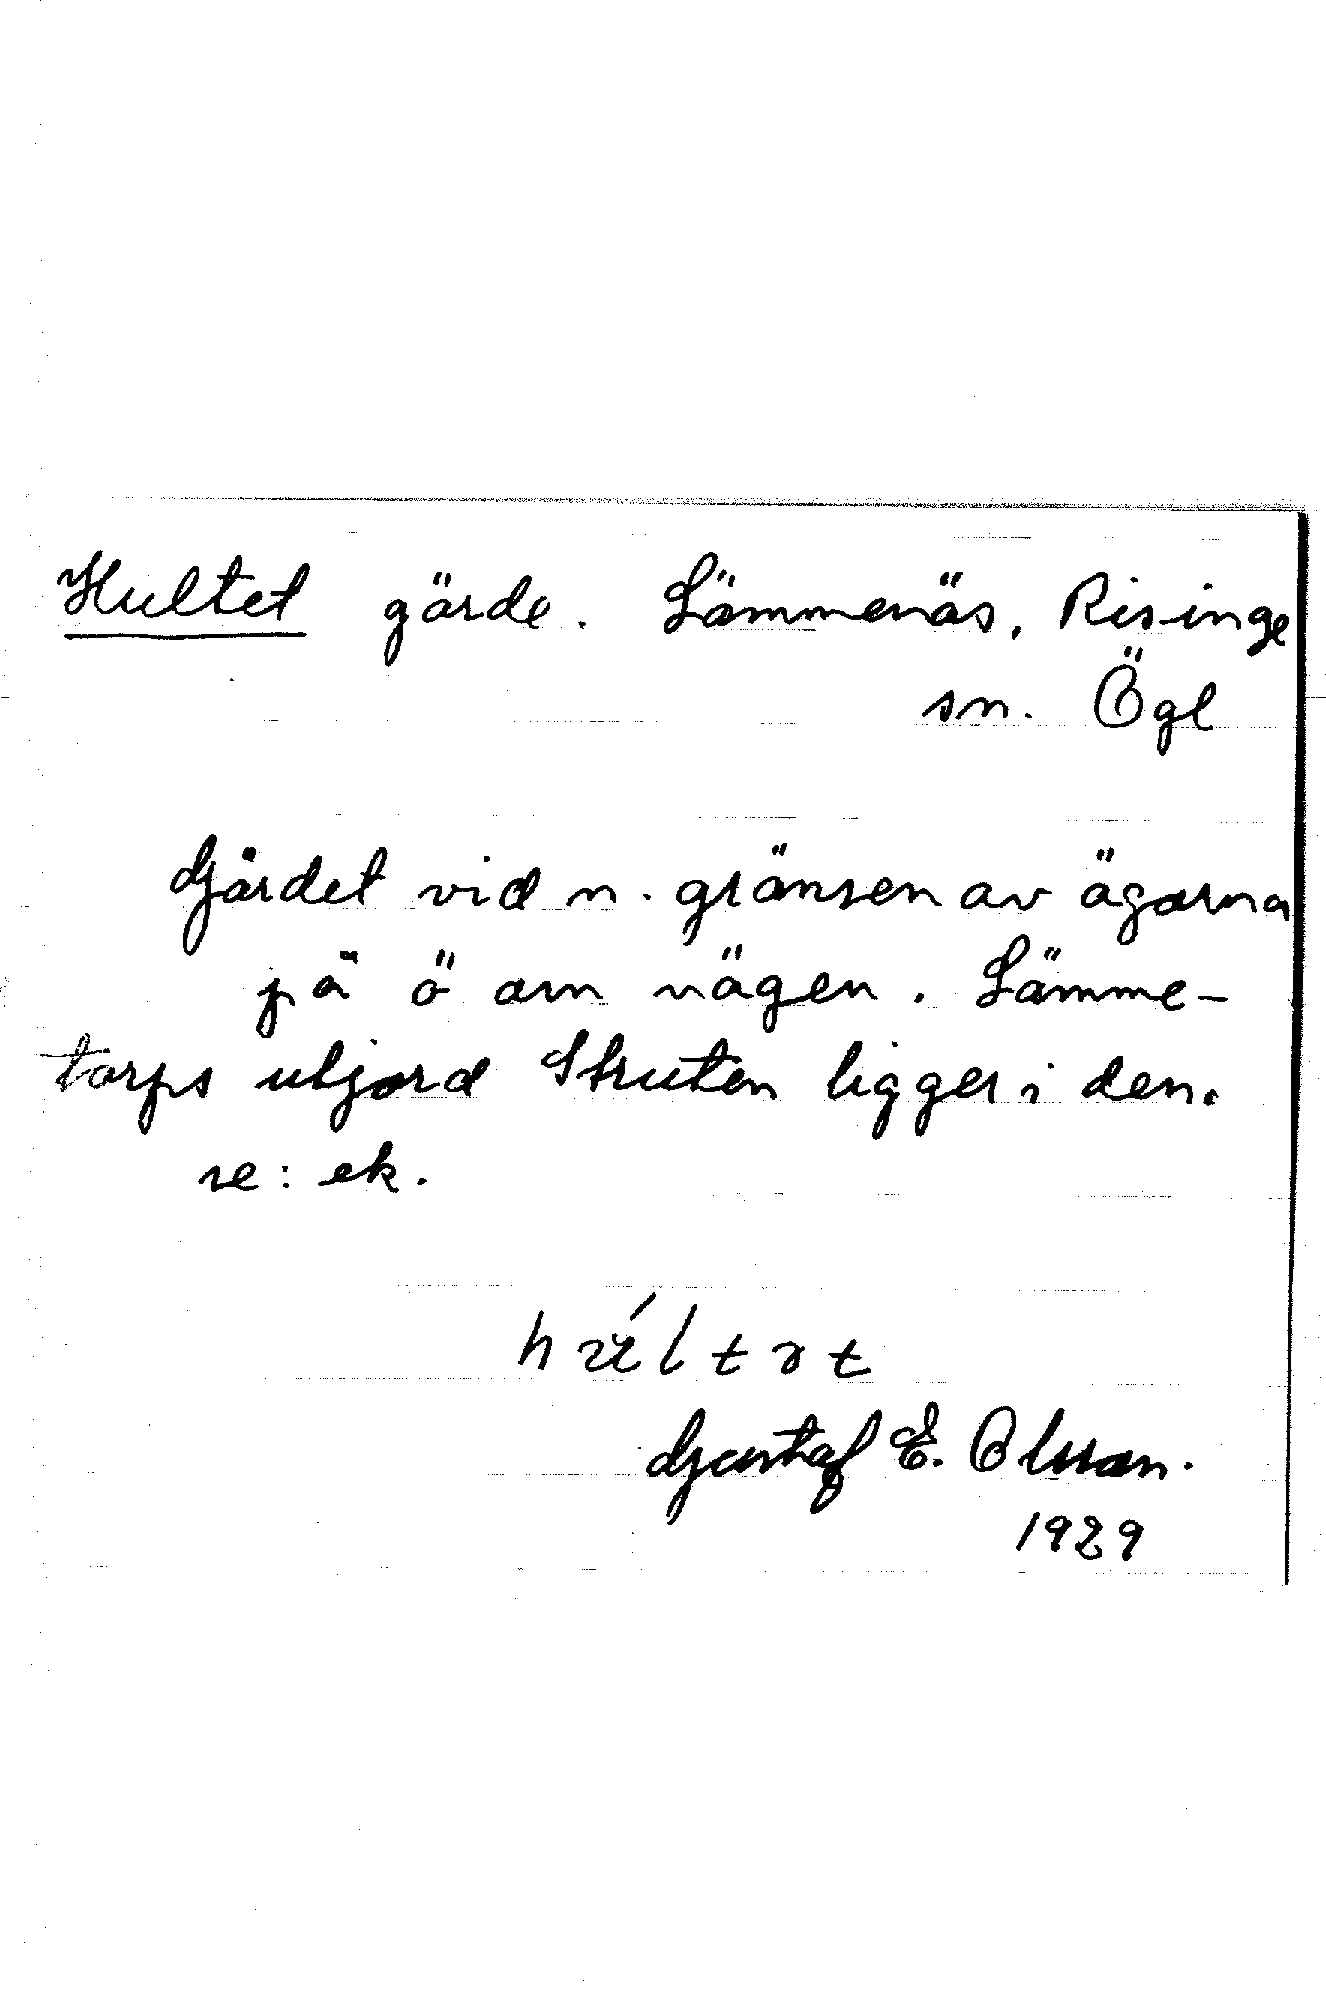 Hultet gärde. Lämmenäs, Risinge
sn. Ögl
Gärdet vid n. gränsen av ägorna
på ö om vägen. Lämme-
torps utjord Struten ligger i den.
se: ek.
Gustaf E. Olsson.
1929